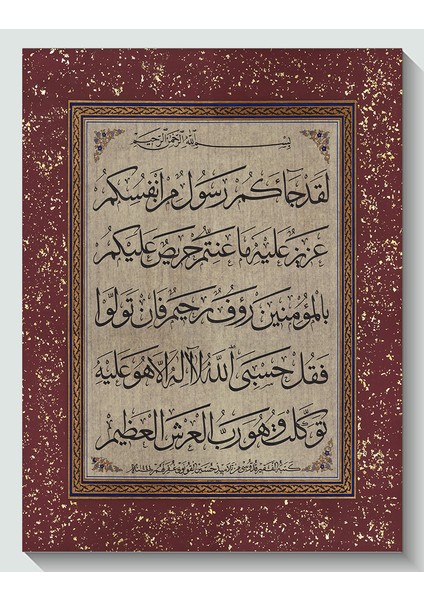 بسم الله الرحمن الرحيم
لقد جائكم رسول من انفسكم
عزيز عليه ما عنتم حريص عليكم
بالمؤمنين رؤف رحيم فان تولوا
فقل حسبي الله لا اله الا هو عليه
توكلت وهو رب العرش العظيم